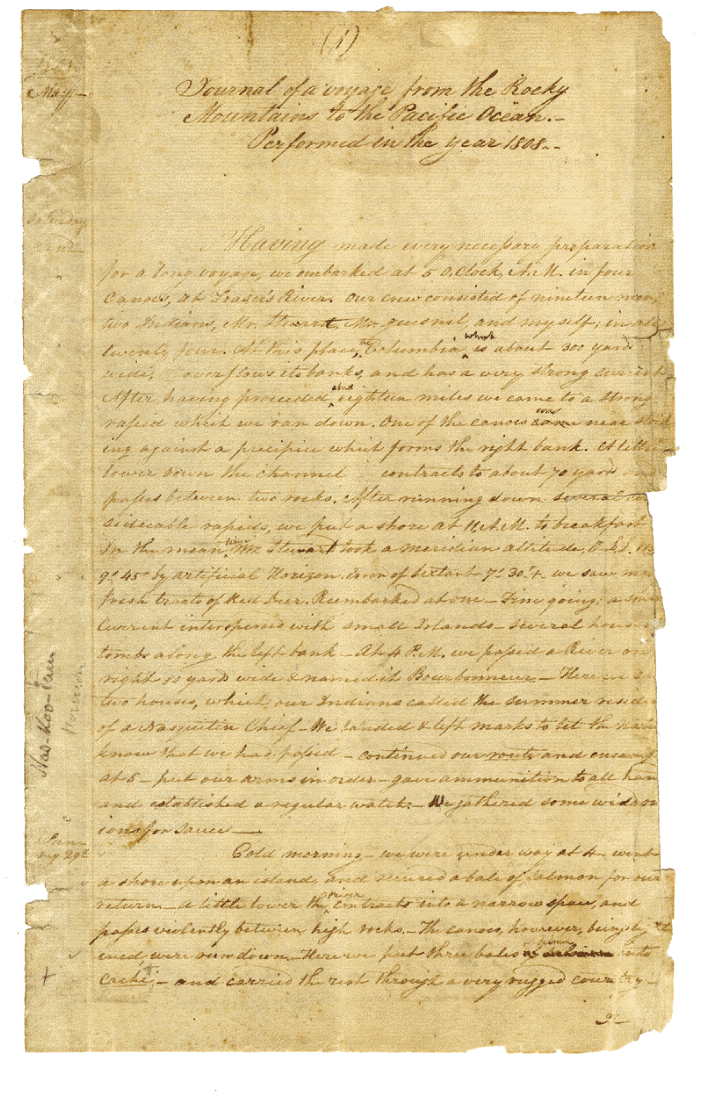 (1)
May
Journal of a voyage from the Rocky
Mountains to the Pacific Ocean.-
Performed in the year 1808.-
Saturday
Having made every necessary preparation
for a long voyage, we embarked at 5 O,Clock, A.M. in four
Canoes, at Fraser's River. Our crew consisted of nineteen men,
two Indians, Mr. Stuart, Mr. Quesnil, and myself; in all
twenty four. At this place, the Columbia which is about 300 yards
wide, overflows its banks, and has a very strong current
After having proceeded eighteen miles we came to a strong
rapid which we ran down. One of the canoes was near strik
ing against a precipice which forms the right bank. A little
lower down the channel contracts to about 70 yards and
passes between two rocks. After running down several con
siderable rapids, we put a shore at 11 A.M. to breakfast
In the mean time Mr. Stewart took a meridian altitude, O.L.L.
9° 45° by artificial Horizon. Error of Sextant 7' 30" + we saw many
fresh tracts of Red Deer. Reembarked at one - Fine going: a small
Current interspersed with small Islands - several houses
tombs along the left bank - At 4 P.M. we passed a River on
right 50 yards wide & named it Bourbonneur - Here we saw
two houses, which our Indians called the summer reside
of a Nasquitin Chief - We landed & left marks to let the nati
know that we had passed - continued our route and encamp
at 6 - put our arms in order - gave ammunition to all hand
and established a regular watch: - We gathered some wild on
ions for sauce -
Nas-Koo-tain
Cold morning - we were under way at 4 - went
a shore upon an island, and secured a bale of salmon for our
return - a little lower the river contracts into a narrow space, and
passes violently between high rocks. - The canoes, however, being light
ened were run down. Here we put three bales into
Cache, - and carried the rest through a very rugged country -